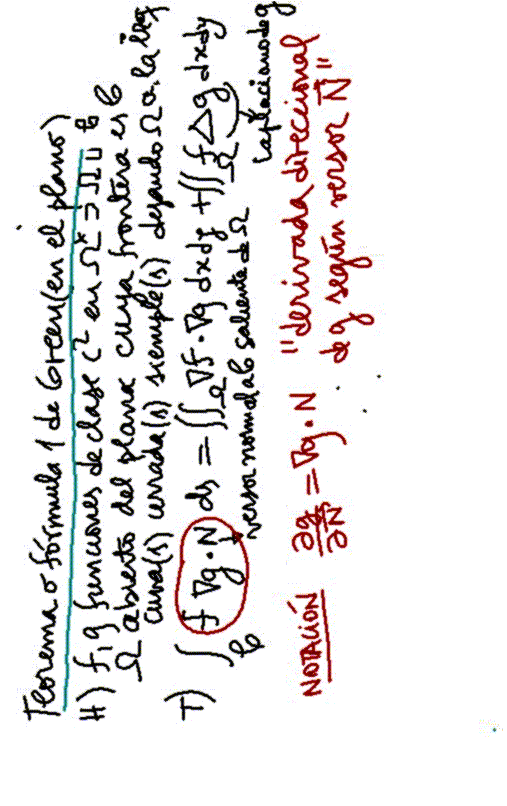 Teorema o fórmula 1 de Green (en el plano)
H) f, g funciones de clase C² en Ω* = Ω ∪ C
Ω abierto del plano cuya frontera es C
curva(s) cerrada(s) simple(s) dejando Ω a la izq
T) ∫_C f ∇g · N ds = ∬_Ω ∇f · ∇g dxdy + ∬_Ω f Δg dxdy
versor normal a C saliente de Ω
Laplaciano de g
NOTACIÓN ∂g/∂N = ∇g · N "derivada direccional
de g según versor N"